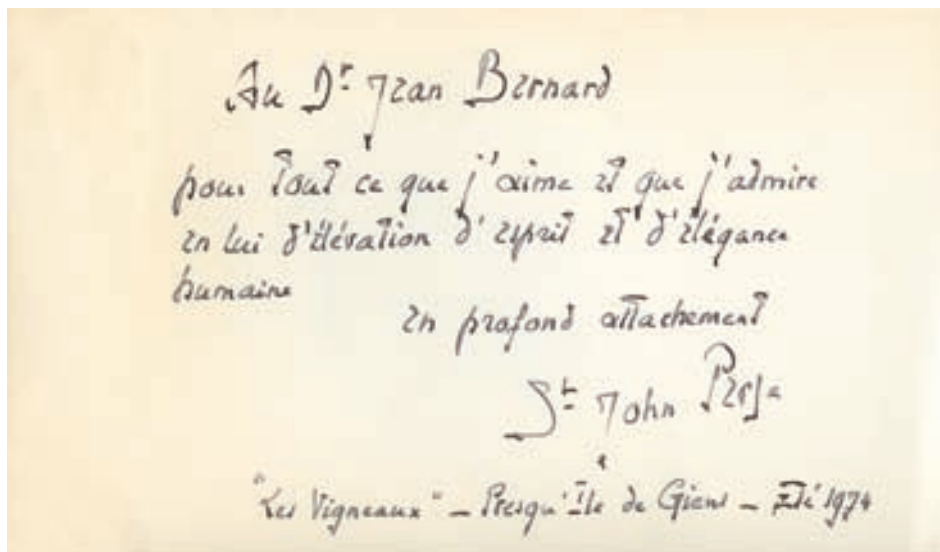 Au Dr. Jean Bernard
pour tout ce que j'aime et que j'admire
en lui d'élévation d'esprit et d'élégance
humaine
en profond attachement
St. John Perse
"Les Vigneaux" – Presqu'Ile de Giens – Eté 1974